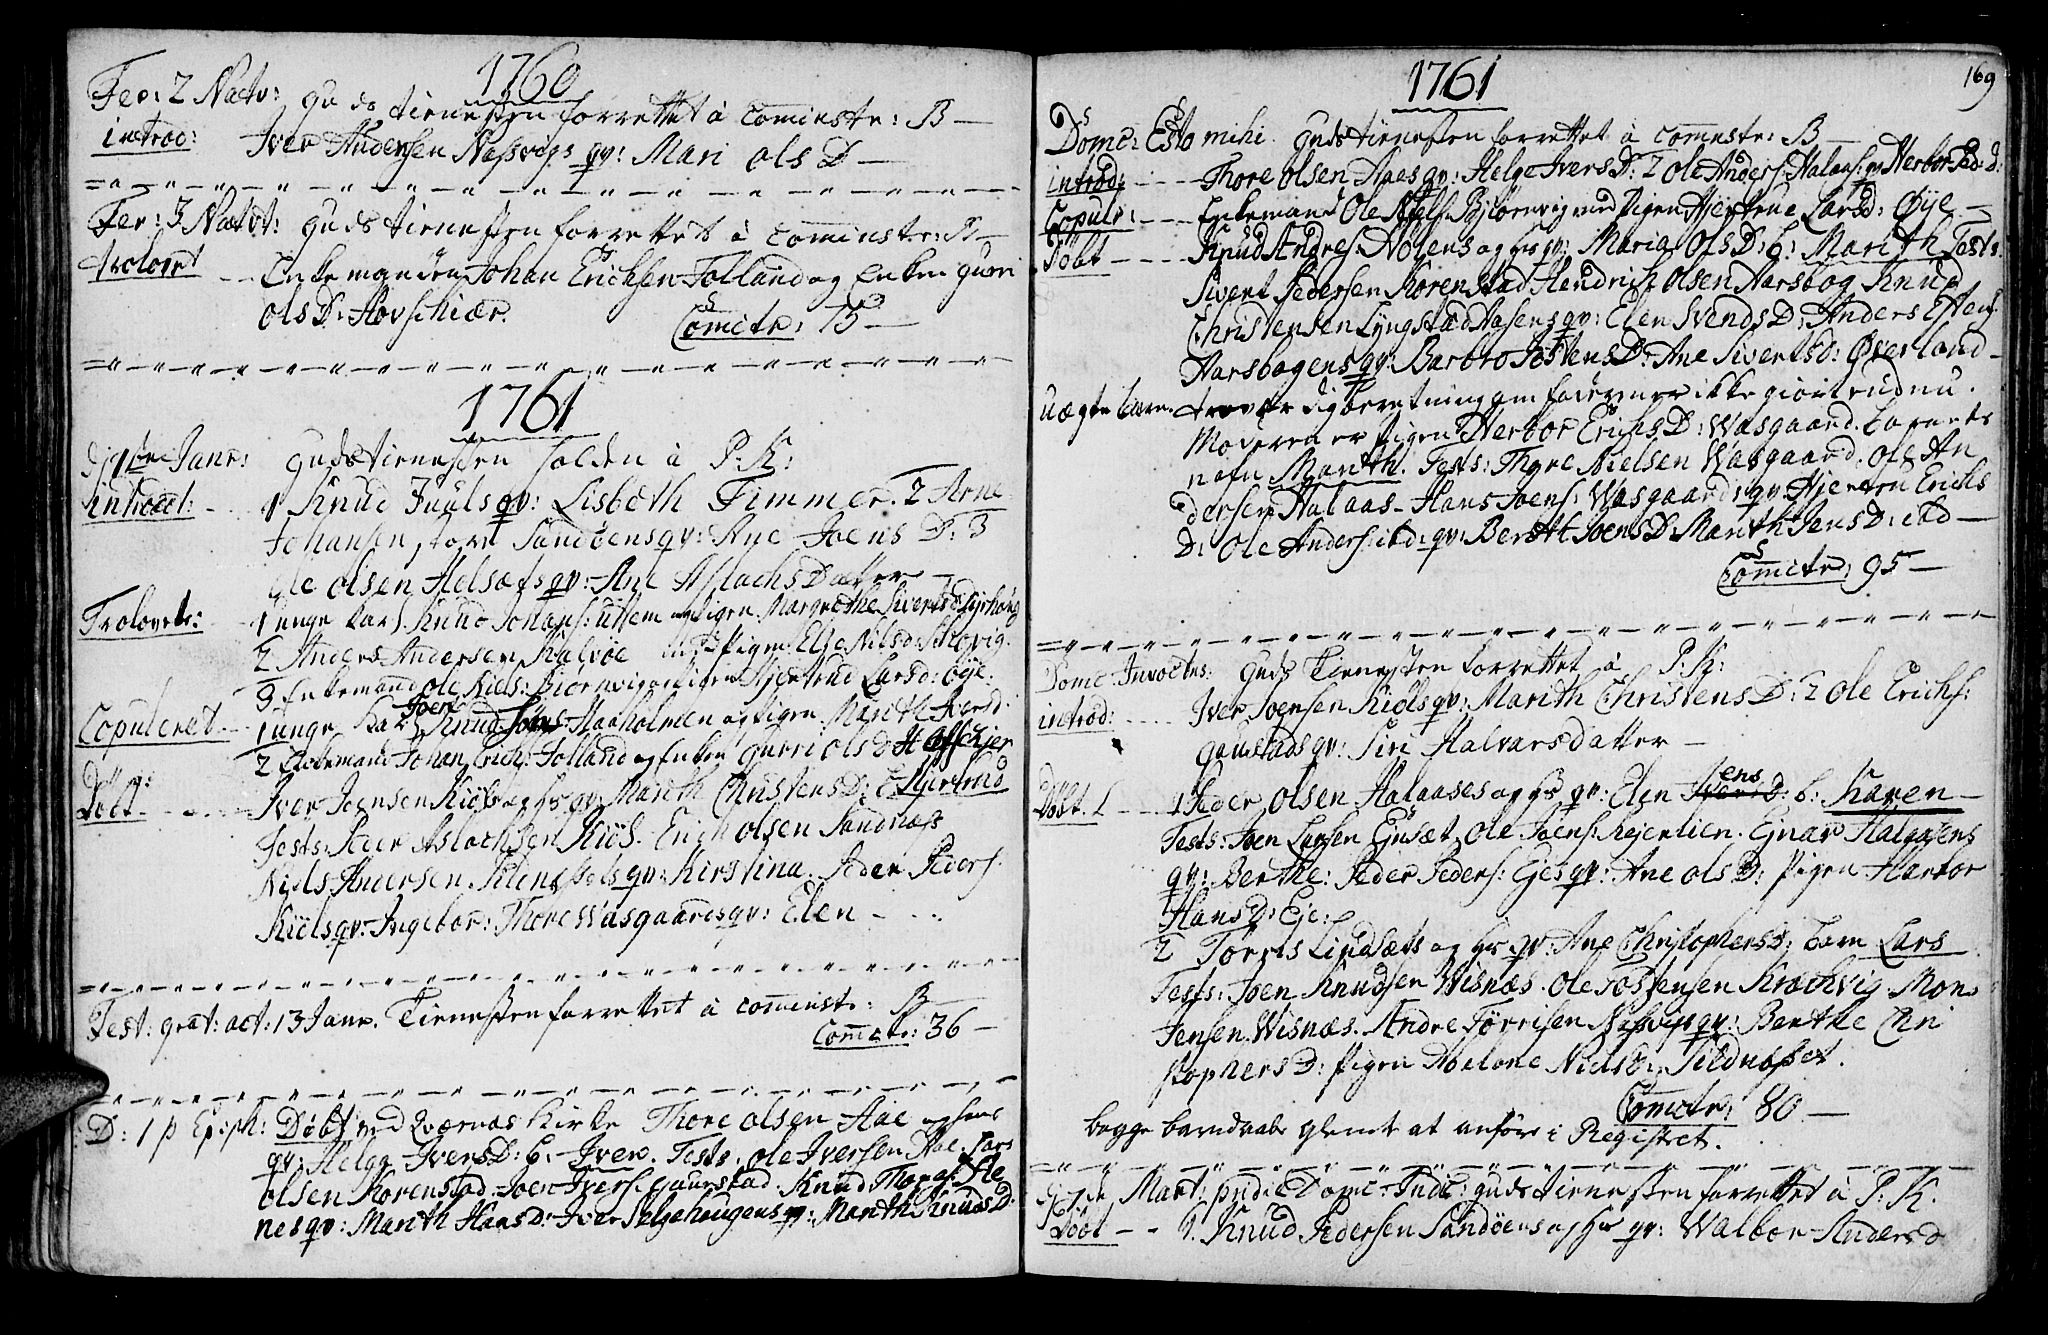 1760
Fer: 2 Nativ: Guds tienesten forrettet à Cominstr: B
introd: Iver Andersen Nassvigs qv: Mari Ols D
Fer: 3 Natvt: Guds tienesten forrettet à Cominstr: B
trolovet Enkemanden Johan Erichsen Folland og Enken Guri
Ols D: Hovschiær. Comctr: 75
1761
d. 1ste Janr: Guds tienesten holden à P: K:
introd: 1 Knud Juuls qv: Lisbeth Timmer. 2 Arne
Johansen Sandøens qv: Ane Joens D: 3
Ole Olsen Helsæts qv: Ane Aslachs Datter
Trolovet: 1 unge Karl Knud Johans: Uttem og Pigen Margrethe Siverts D:
2 Anders Andersen Kalvøe med Pigen Else Nilsd: Skovig.
3 Enkemand Ole Niels: Biørnvig og Pigen Hjertrud Larsd: Øye.
Copuleret 1 unge Karl Joen Knuds: Staaholmen og Pigen Marith Iversd:
2 Enkemand Johan Erich: Folland og Enken Gurri Ols D Hoffschier
Døbt Iver Joensen Kiöls og hs qv: Marith Christens D: b: Hjertrud
Tests: Peder Aslachsen Kiöl. Erich Olsen Sandnæss
Niels Andersen. qv: Kirstina. Peder Peders:
Kiöls qv: Ingebor: Thore Wasgaards qv: Elen
Fest: grat: act: 13 Janr. Tienesten forrettet à Cominstr: B
Comctr: 36
D: 1 p Epiph: Døbt ved Qværnæs Kirke Thore Olsen Aae og hans
qv: Helge Ivers D: b. Iver. Tests. Ole Iversen Aae Lars
Olsen Korenstad. Joen Ivers: Gaustad. Knud Thores:
nes qv: Marith Hans D: Iver Selgehougens qv: Marith Knuds D:
169
1761
Domc: Esto mihi. Gudstienesten forrettet à Cominstr: B
introd: Thore Olsen Aaes qv: Helge Ivers D: 2 Ole Anders: Halaas: qv Herbor Ped: D:
Copulr: Enkemand Ole Niels: Bjørnvig med Pigen Hjertrue Larsd: Øye
Døbt Knud Andres: Nölens og hs qv: Maria Ols D: b: Marith Tests.
Sivert Pedersen Korenstad Hendrich Olsen Harsbog Knud
Christensen Lyngstad Aasens qv: Elen Svends D: Anders Estens:
Harsbogens qv: Barbro Jostens D: Ane Sivertsd: Øverland
uægte barn. troværdig beretning om faderen er ikke giort endnu.
Moderen er Pigen Herbor Erichs D: Wasgaard. barnets
nafn Marith. Tests: Thore Nielsen Wasgaard. Ole An
dersen Halaas. Hans Joens: Wasgaards qv: Hjertru Erichs
D: Ole Anders: ibd: qv: Berith Joens D: Marith Jens D: ibd
Comctr: 95
Domc. Invocts: Guds Tienesten forrettet à P: K:
introd: Iver Joensen Kiöls qv: Marith Christens D: 2 Ole Erichs:
Gaustads qv: Siri Halvarsdatter
Døbt. 1 Peder Olsen Halaases og hs qv: Elen Ivers ens D: b: Karen
Tests: Joen Larsen Ejusæt. Ole Joens: Rejerlien. Ejnar Halaasens
qv: Berthe: Peder Peders: Ejes qv: Ane Ols D: Pigen Harbor
Hans D: Eje:
2 Torris Lindsæts og hs qv: Ane Christophersd: barn Lars
Tests: Joen Knudsen Wisnæs. Ole Tostensen Krachvig Mons
Jensen Wisnæs. Andre Tørrisen Nasvigs qv: Berthe Chri
stophers D: Pigen Abelone Niels D: Tildnæsset.
Comctr: 80
begge barndaabe glemt at anføre i Registret.
d. 7de Mart: pridie Domc: Judic: Guds tienesten forrettet à P: K:
Døbt 1. Knud Pedersen Sandöens og hs qv: Walbor Andersd